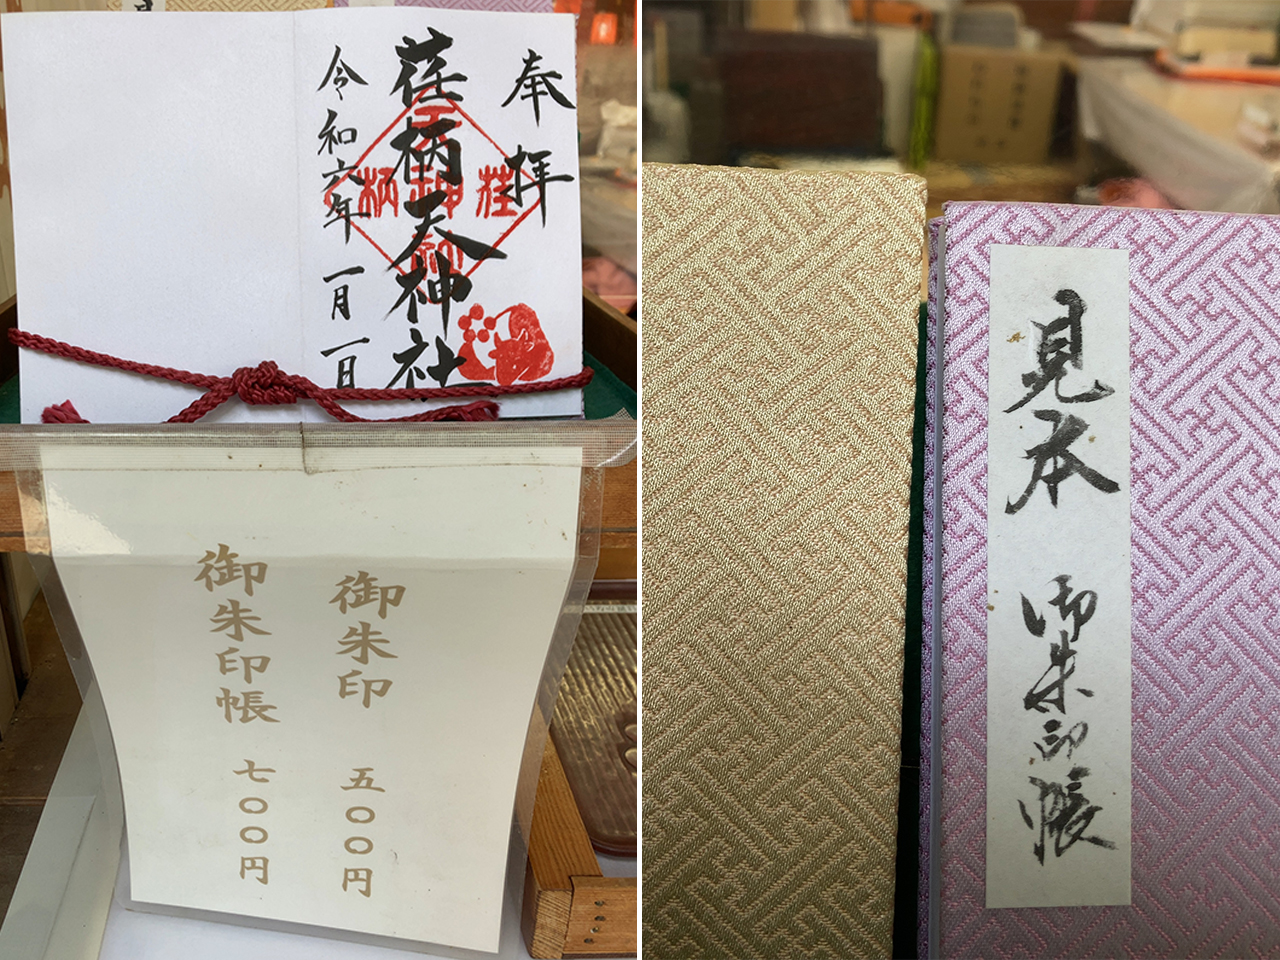 奉拝
荏柄天神社
令和六年一月一日
荏柄
御朱印 五〇〇円
御朱印帳 七〇〇円
見本 御朱印帳